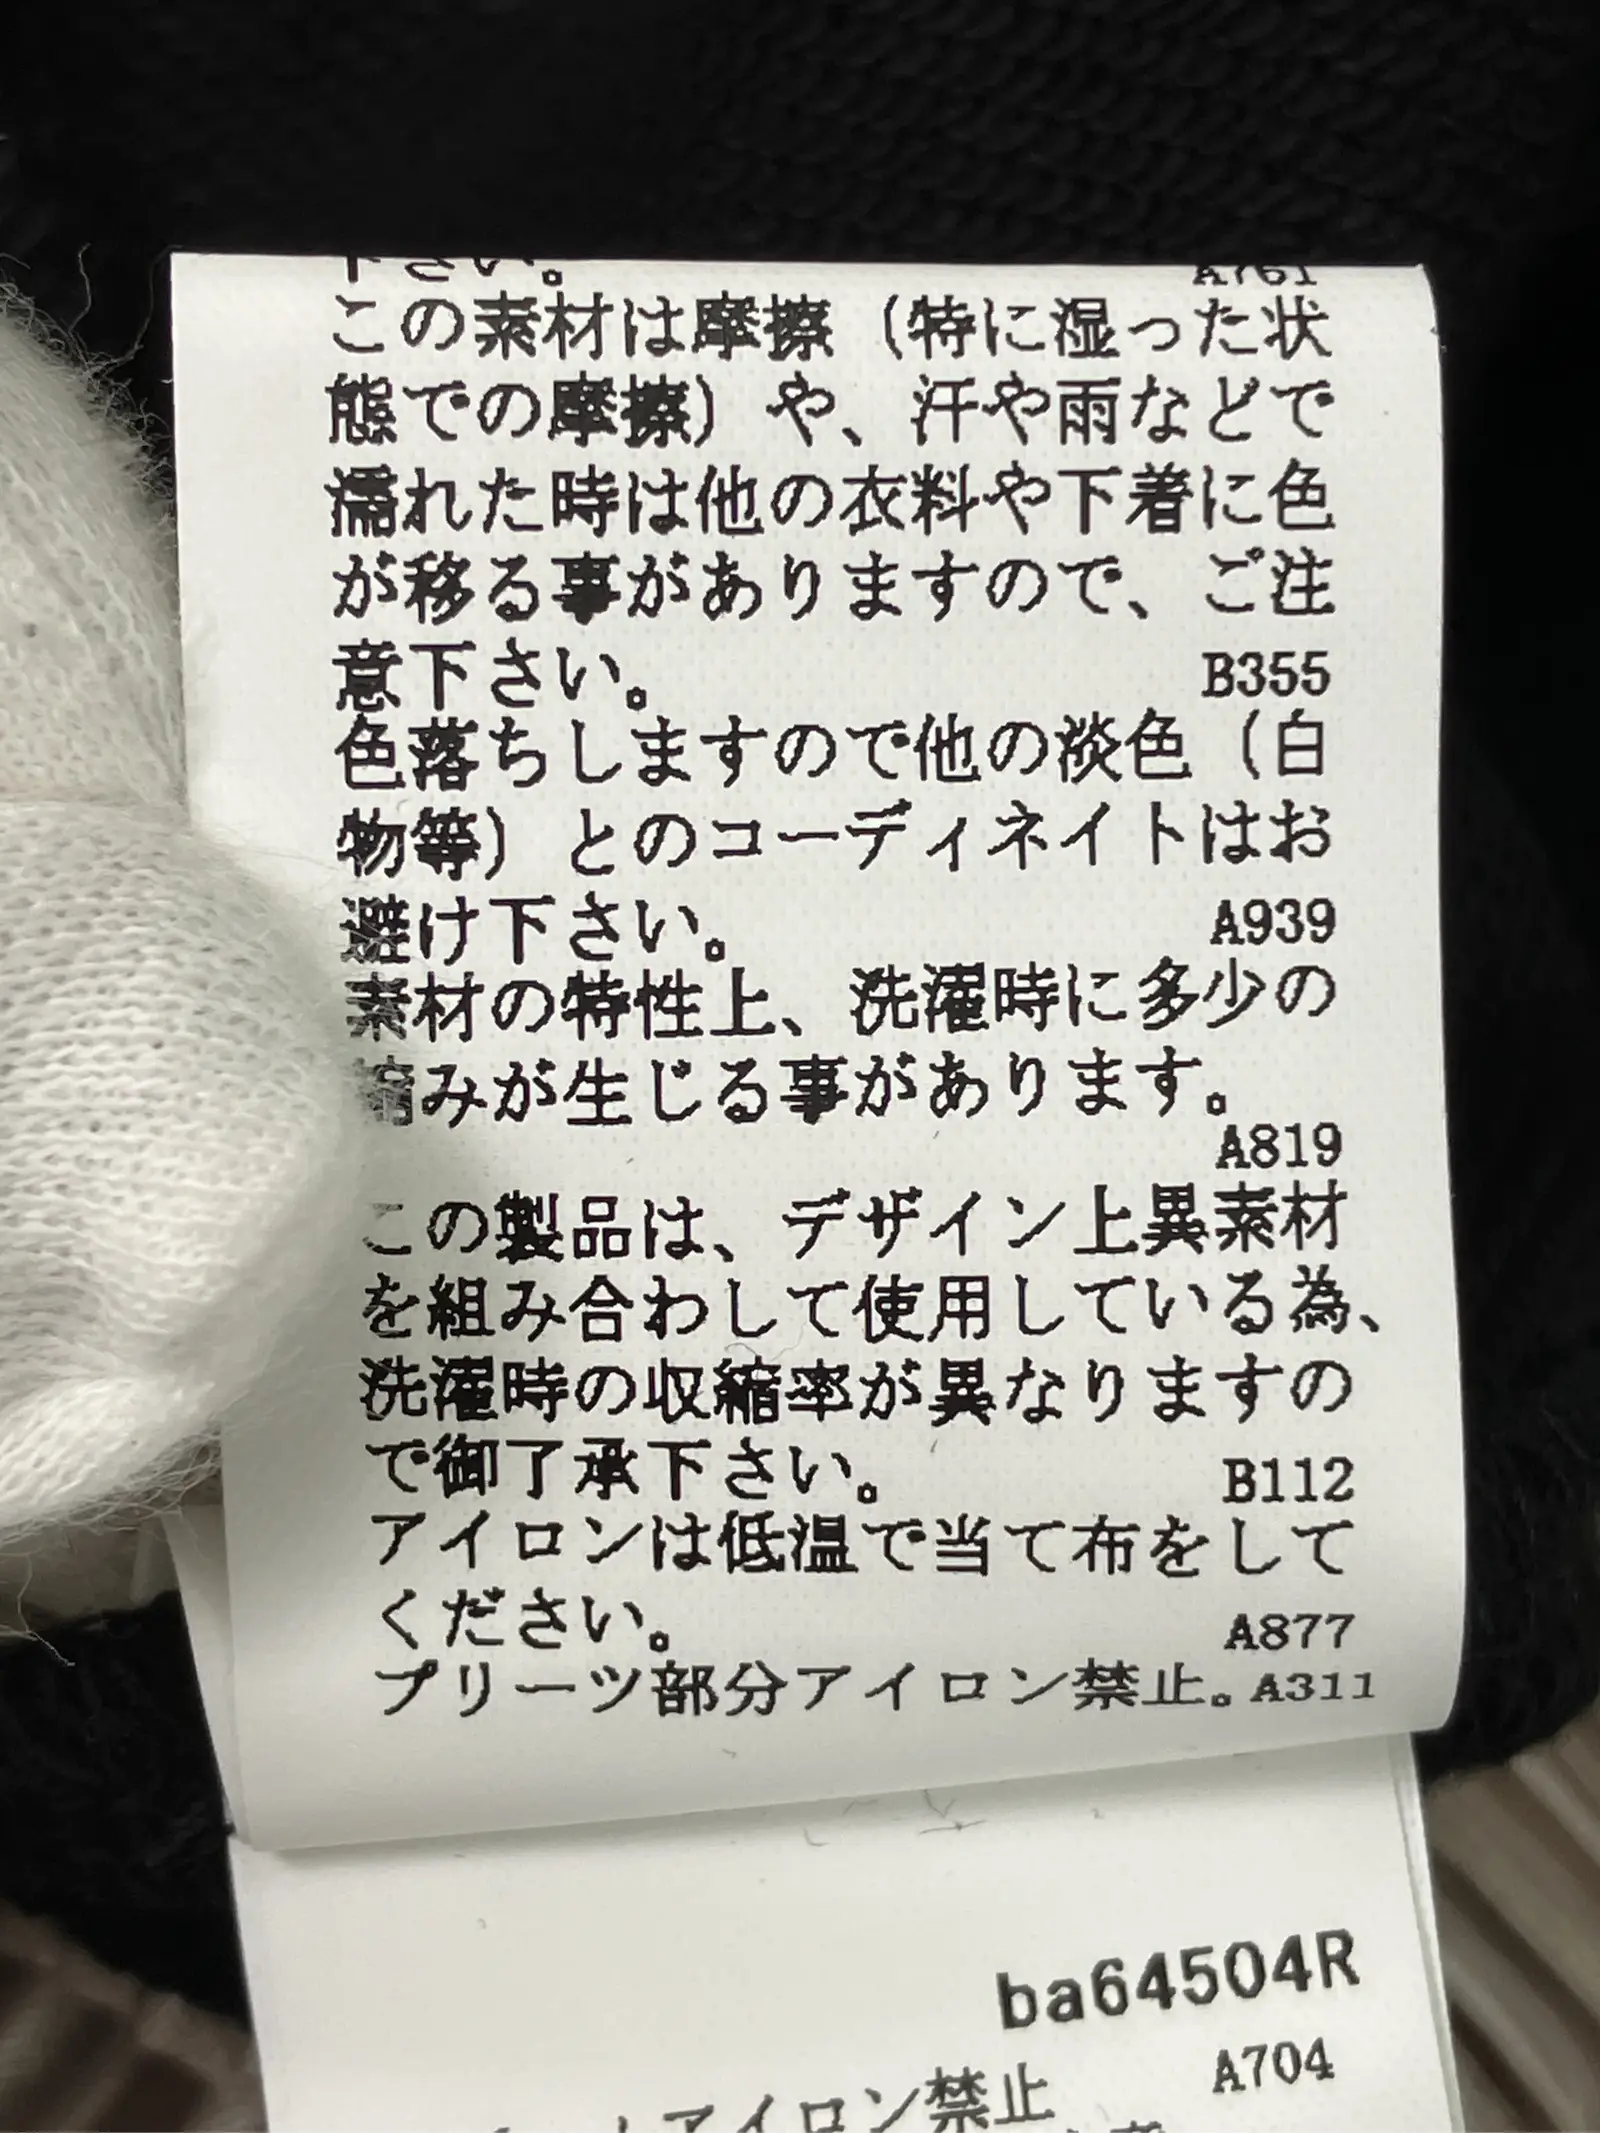 下さい。 A761
この素材は摩擦（特に湿った状
態での摩擦）や、汗や雨などで
濡れた時は他の衣料や下着に色
が移る事がありますので、ご注
意下さい。 B355
色落ちしますので他の淡色（白
物等）とのコーディネイトはお
避け下さい。 A939
素材の特性上、洗濯時に多少の
縮みが生じる事があります。
A819
この製品は、デザイン上異素材
を組み合わして使用している為、
洗濯時の収縮率が異なりますの
で御了承下さい。 B112
アイロンは低温で当て布をして
ください。 A877
プリーツ部分アイロン禁止。A311
ba64504R
A704
アイロン禁止